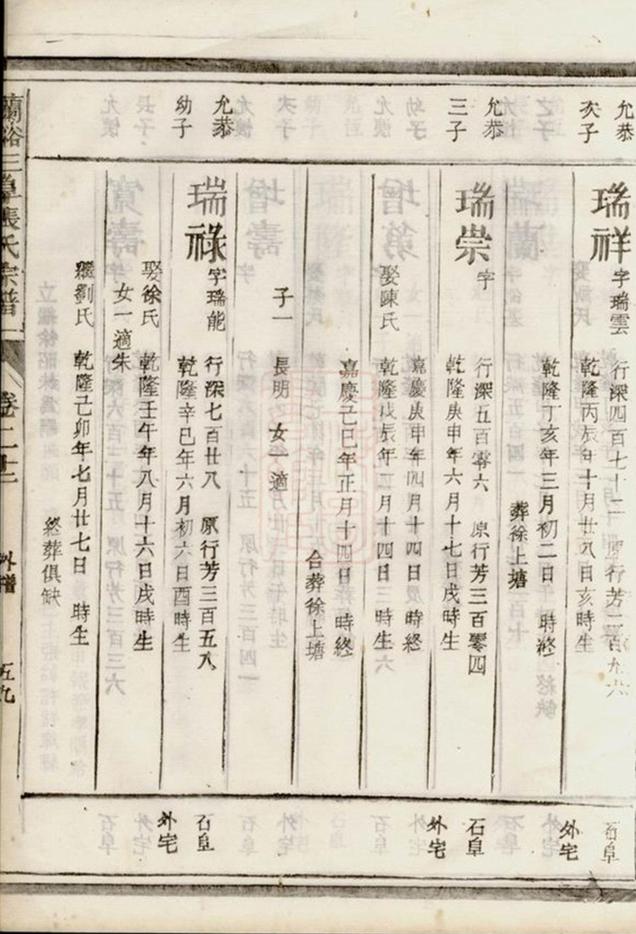 允恭
次子
瑞祥
字瑞雲 行深四百七十二 原行芳二百九六
乾隆丙辰年十月廿八日亥時生
乾隆丁亥年三月初二日 時終
葬徐上塘
石阜
外宅
允恭
三子
瑞崇
字 行深五百零六 原行芳三百零四
乾隆庚申年六月十七日戌時生
嘉慶庚申年四月十四日 時終
娶陳氏 乾隆戊辰年二月十四日 時生
嘉慶己巳年正月十四日 時終
合葬徐上塘
子一 長明 女一適
石阜
外宅
允恭
幼子
瑞祿
字瑞能 行深七百廿八 原行芳三百五八
乾隆辛巳年六月初六日酉時生
娶徐氏 乾隆壬午年八月十六日戌時生
女一適朱
繼劉氏 乾隆己卯年七月廿七日 時生
終葬俱缺
石阜
外宅
張氏宗譜
外譜 五九